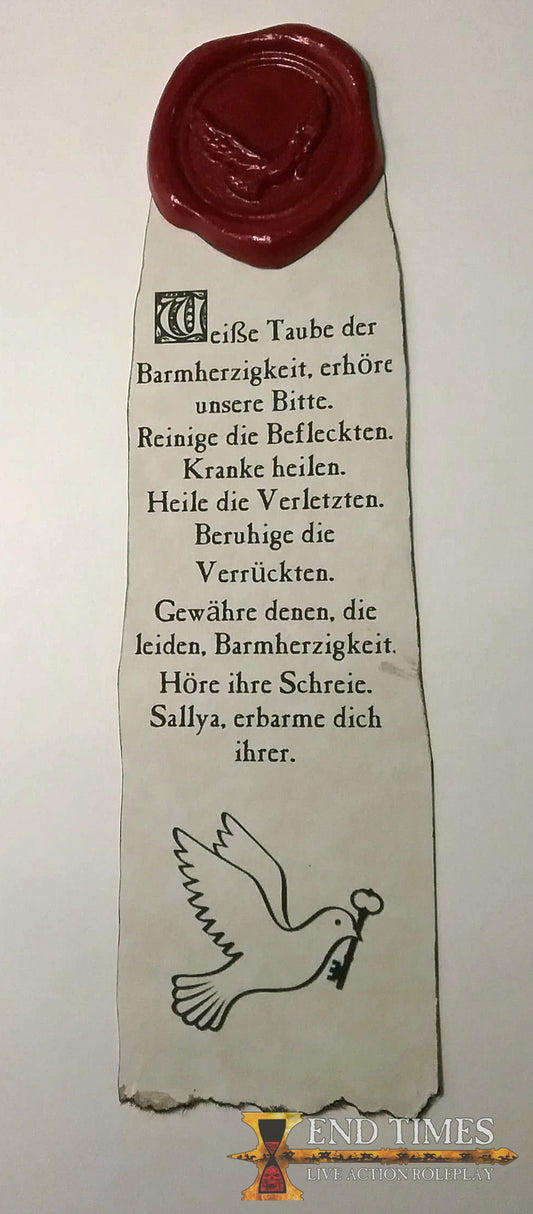 Weiße Taube der
Barmherzigkeit, erhöre
unsere Bitte.
Reinige die Befleckten.
Kranke heilen.
Heile die Verletzten.
Beruhige die
Verrückten.
Gewähre denen, die
leiden, Barmherzigkeit.
Höre ihre Schreie.
Sallya, erbarme dich
ihrer.
END TIMES
LIVE ACTION ROLEPLAY